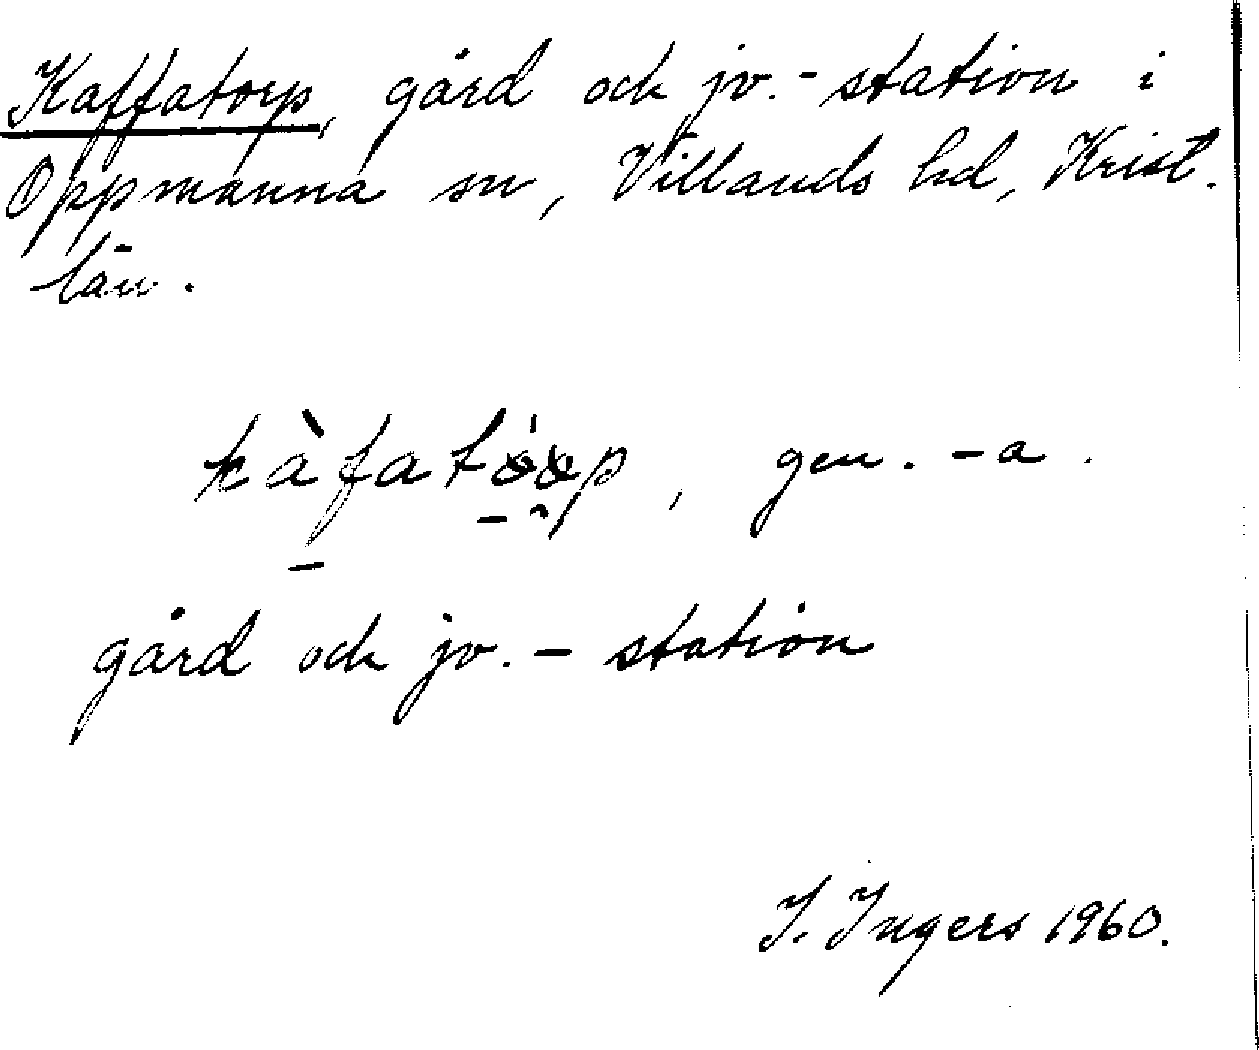 Kaffatorp, gård och jv.-station i
Oppmanna sn, Villands hd, Krist.
län.
gen. -a.
gård och jv.-station
I. Ingers 1960.